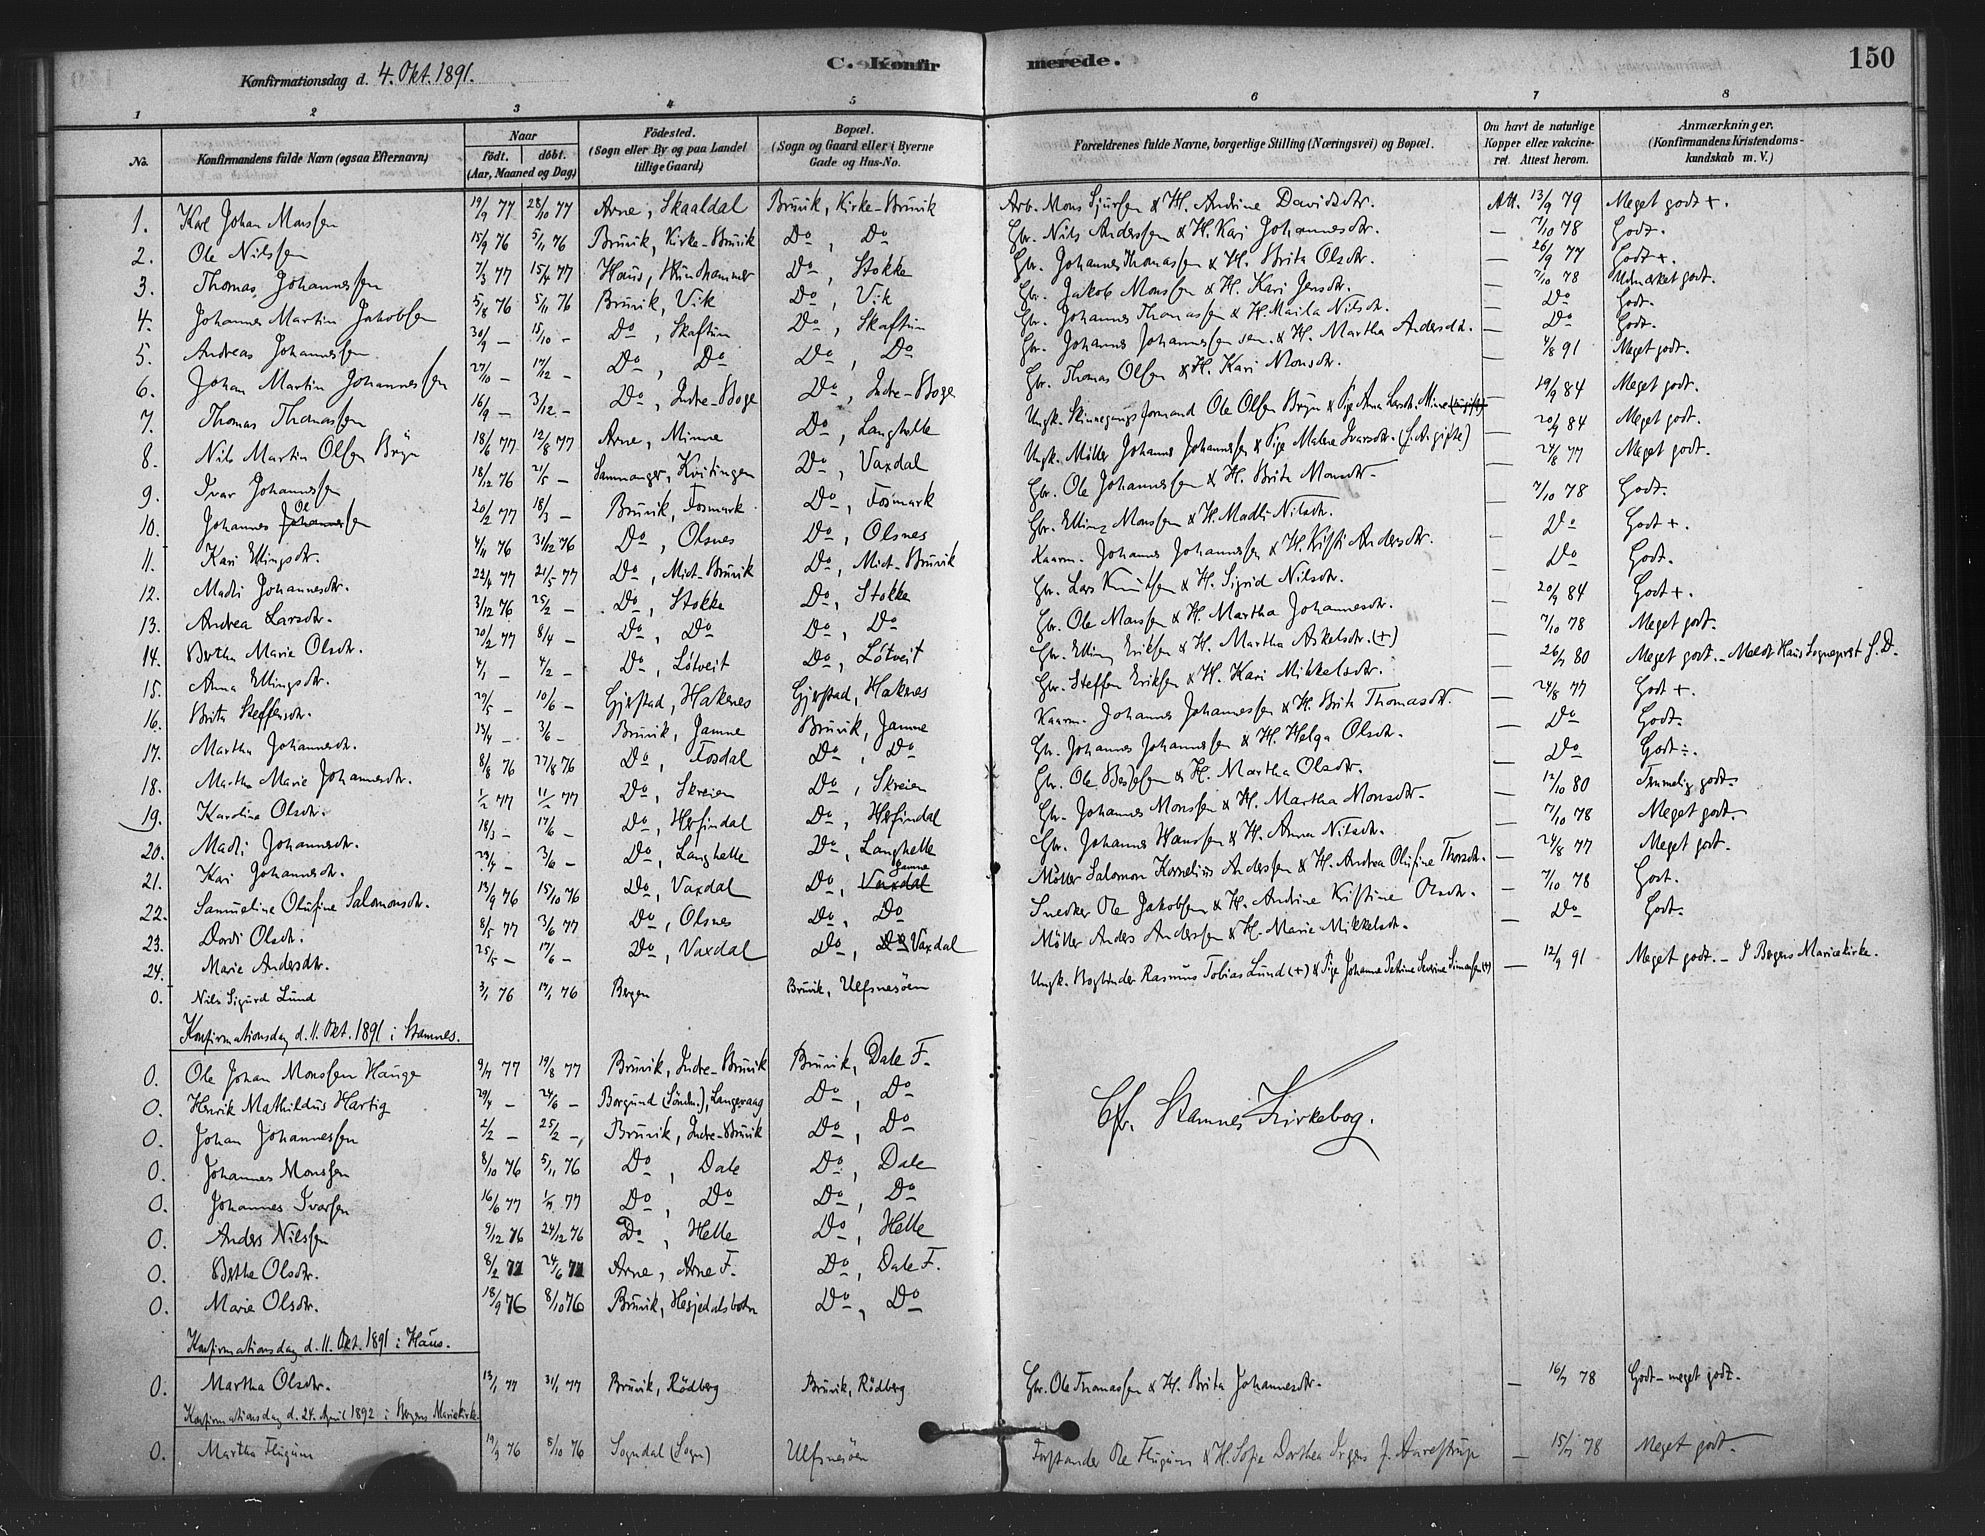 Konfirmationsdag d. 4. Okt. 1891.
C. Konfirmerede.
150
1 2 3 4 5 6 7 8
No. Konfirmandens fulde Navn (ogsaa Efternavn) Naar født. døbt. (Aar, Maaned og Dag) Fødested. (Sogn eller By og paa Landet tillige Gaard) Bopæl. (Sogn og Gaard eller i Byerne Gade og Hus-No. Forældrenes fulde Navne, borgerlige Stilling (Næringsvei) og Bopæl. Om havt de naturlige Kopper eller vakcineret. Attest herom. Anmærkninger. (Konfirmandens Kristendomskundskab m. V.)
1. Karl Johan Monssen 19/9 77 28/10 77 Arne, Skaaldal Bruvik, Kirke-Bruvik Arb. Mons Sjursen & H. Andine Davidsdtr. Att. 13/9 79 Meget godt +.
2. Ole Nilssen 15/9 76 5/11 76 Bruvik, Kirke-Bruvik Do, Do Gbr. Nils Anderssen & H. Kari Johannesdtr. — 7/10 78 Godt.
3. Thomas Johannessen 7/3 77 15/4 77 Haus, Do, Stokke Gbr. Johannes Thomassen & H. Brita Olsdtr. — 26/9 77 Godt +.
4. Johannes Martin Jakobsen 5/8 76 5/11 76 Bruvik, Vik Do, Vik Gbr. Jakob Monssen & H. Kari Jensdtr. — 7/10 78 Udmærket godt.
5. Andreas Johannessen 30/9 — 15/10 — Do, Skaftun Do, Skaftun Gbr. Johannes Thomassen & H. Marita Nilsdtr. — Do Godt.
6. Johan Martin Johannessen 27/10 — 17/12 — Do, Do Do, Do Gbr. Johannes Johannessen sen. & H. Martha Andersdtr. — Do Godt.
7. Thomas Thomassen 16/9 — 3/12 — Do, Indre-Boge Do, Indre-Boge Gbr. Thomas Olsen & H. Kari Monsdtr. — 4/8 91 Meget godt.
8. Nils Martin Olsen Bryn 18/6 77 12/8 77 Arne, Minne Do, Langhelle Ungk. Ole Olsen Bryn & Pige Anna Larsdtr. Minne — 19/9 84 Meget godt.
9. Ivar Johannessen 18/12 76 21/5 — Samnanger, Kvitingen Do, Vaxdal Ungk. Møller Johannes Johannessen & Pige Malene Ivarsdtr. — 20/9 84 Meget godt.
10. Johannes Olsen 20/2 77 18/3 — Bruvik, Fosmark Do, Fosmark Gbr. Ole Johannessen & H. Brita Monsdtr. — 24/8 77 Meget godt.
11. Kari Ellingsdtr. 4/11 76 31/12 76 Do, Olsnes Do, Olsnes Gbr. Elling Monssen & H. Madli Nilsdtr. — 7/10 78 Godt.
12. Madli Johannesdtr. 22/4 77 21/5 77 Do, Midt-Bruvik Do, Midt-Bruvik Kaarm. Johannes Johannessen & H. Kristi Andersdtr. — Do Godt +.
13. Andrea Larsdtr. 3/12 76 25/2 — Do, Stokke Do, Stokke Gbr. Lars Knutsen & H. Sigrid Nilsdtr. — Do Godt.
14. Bertha Marie Olsdtr. 20/2 77 8/4 — Do, Do Do, Do Gbr. Ole Monssen & H. Martha Johannesdtr. — 20/9 84 Godt +.
15. Anna Ellingsdtr. 4/1 — 4/2 — Do, Løtveit Do, Løtveit Gbr. Elling Eriksen & H. Martha Askelsdtr. (+) — 7/10 78 Meget godt.
16. Brita Steffensdtr. 29/5 — 10/6 — Gjerstad, Hakenes Gjerstad, Haknes Gbr. Steffen Eriksen & H. Kari Mikkelsdtr. — 26/7 80 Meget godt. — Meldt Haus Sogneprest s. D.
17. Martha Johannesdtr. 15/4 — 3/6 — Bruvik, Jamne Bruvik, Jamne Kaarm. Johannes Johannessen & H. Brita Thomasdtr. — 24/8 77 Godt +.
18. Martha Marie Johannesdtr. 8/8 76 27/8 76 Do, Fosdal Do, Do Gbr. Johannes Johannessen & H. Helga Olsdtr. — Do Godt.
19. Karolina Olsdtr. 1/2 77 11/2 77 Do, Skreien Do, Skreien Gbr. Ole & H. Martha Olsdtr. — Do Godt ÷.
20. Madli Johannesdtr. 18/3 — 17/6 — Do, Herfindal Do, Herfindal Gbr. Johannes Monssen & H. Martha Monsdtr. — 12/10 80 Temmelig godt.
21. Kari Johannesdtr. 29/4 — 3/6 — Do, Langhelle Do, Langhelle Gbr. Johannes Hanssen & H. Anna Nilsdtr. — 7/10 78 Meget godt.
22. Samueline Olufine Salomonsdtr. 13/9 76 15/10 76 Do, Vaxdal Do, Vaxdal Jamne Møller Salomon Kornelius Anderssen & H. Andrea Olufine Thorsdtr. — 24/8 77 Meget godt.
23. Dordi Olsdtr. 8/5 77 3/6 77 Do, Olsnes Do, Do Snedker Ole Jakobsen & H. Andrine Kristine Olsdtr. — 7/10 78 Godt.
24. Marie Andersdtr. 25/5 — 17/6 — Do, Vaxdal Do, Do Vaxdal Møller Anders Anderssen & H. Marie Mikkelsdtr. — Do Godt.
0. Nils Sigurd Lund 3/1 76 17/1 76 Bergen Bruvik, Ulfsnesøen Ungk. Bogbinder Rasmus Tobias Lund (+) & Pige Johanne Petrine Severine Simonsen (+) — 12/9 91 Meget godt. — I Bergens Mariækirke.
Konfirmationsdag d. 11. Okt. 1891 i Stamnes.
0. Ole Johan Monssen Hauge 9/7 77 19/8 77 Bruvik, Indre-Bruvik Bruvik, Dale F.
0. Henrik Mathildus Hartig 29/4 — 24/6 — Borgund (Søndm.), Langevaag Do, Do
0. Johan Johannessen 2/2 — 25/2 — Bruvik, Indre-Bruvik Do, Do
Cfr. Stamnes Kirkebog.
0. Johannes Monssen 8/10 76 5/11 76 Do, Dale Do, Dale
0. Johannes Ivarsen 16/6 77 1/7 77 Do, Do Do, Do
0. Anders Nilssen 9/12 76 24/12 76 Do, Helle Do, Helle
0. Berthe Olsdtr. 8/2 77 24/6 77 Arne, Arne F. Do, Dale F.
0. Marie Olsdtr. 18/9 76 8/10 76 Bruvik, Hesjedalsbotn Do, Do
Konfirmationsdag d. 11. Okt. 1891 i Haus.
0. Martha Olsdtr. 13/1 77 31/1 77 Bruvik, Rødberg Bruvik, Rødberg Gbr. Ole Thomassen & H. Brita Johannesdtr. — 16/7 78 Godt - meget godt.
Konfirmationsdag d. 24. April 1892 i Bergens Mariekirke.
0. Martha Flugum 19/9 76 8/10 76 Sogndal (Sogn) Ulfsnesøen Forstander Ole Flugum & H. Sofie Dorthea Irgens f. Aarestrup — 15/7 78 Meget godt.